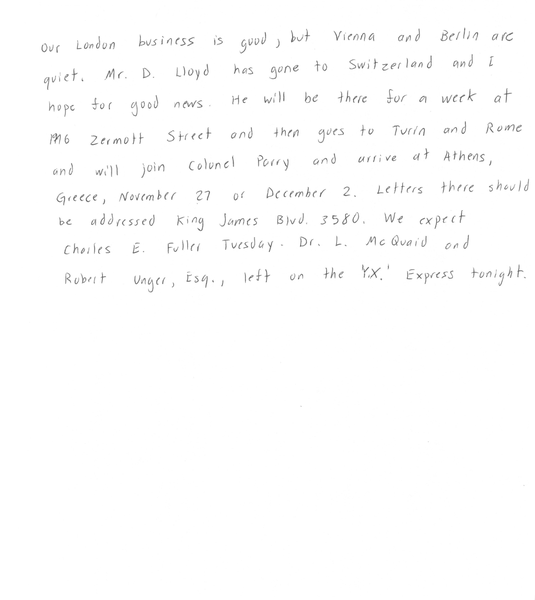 Our London business is good, but Vienna and Berlin are
quiet. Mr. D. Lloyd has gone to Switzerland and I
hope for good news. He will be there for a week at
1996 Zermott Street and then goes to Turin and Rome
and will join Colonel Parry and arrive at Athens,
Greece, November 27 or December 2. Letters there should
be addressed King James Blvd. 3580. We expect
Charles E. Fuller Tuesday. Dr. L. McQuaid and
Robert Unger, Esq., left on the 'Y.X.' Express tonight.